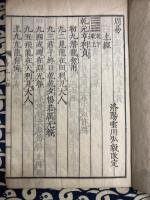 周易
洛陽雲川弘毅改定
上經
乾下
乾上
乾元亨利貞
初九潛龍勿用
九二見龍在田利見大人
九三君子終日乾乾夕惕若厲无咎
九四或躍在淵无咎
九五飛龍在天利見大人
上九亢龍有悔